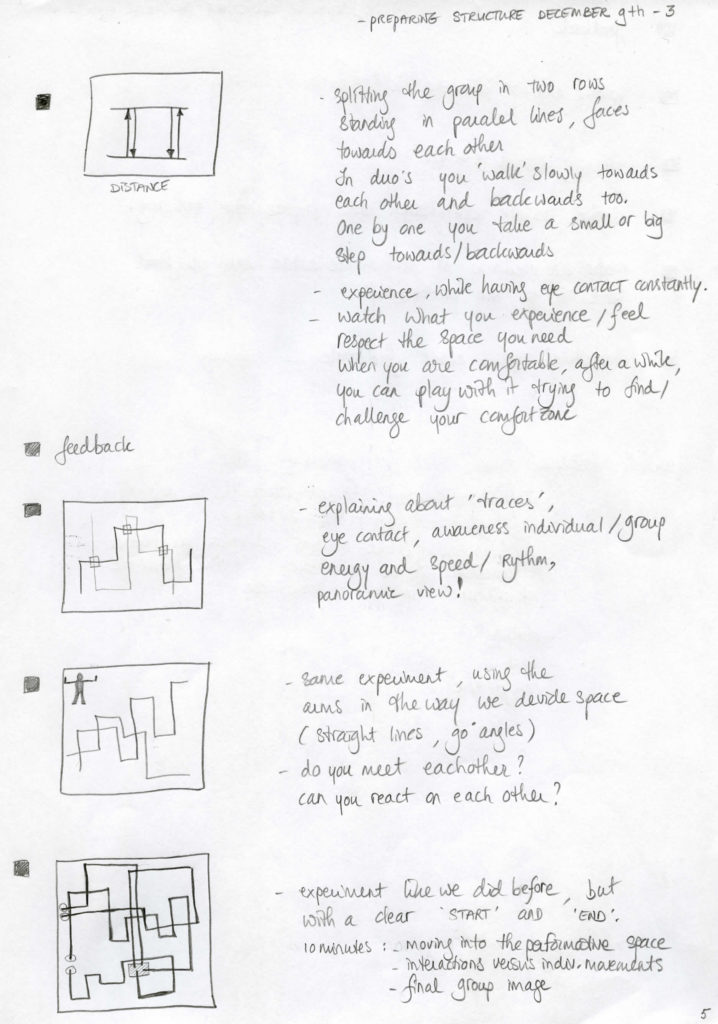 - PREPARING STRUCTURE DECEMBER 9th - 3
DISTANCE
- splitting the group in two rows
standing in paralel lines, faces
towards each other
In duo's you 'walk' slowly towards
each other and backwards too.
One by one you take a small or big
step towards/backwards
- experience, while having eye contact constantly.
- watch what you experience/feel
respect the space you need
when you are comfortable, after a while,
you can play with it trying to find/
challenge your comfortzone
feedback
- explaining about 'traces',
eye contact, awareness individual/group
energy and speed/Rythm,
panoramic view!
- same experiment, using the
arms in the way we devide space
(straight lines, 90° angles)
- do you meet eachother?
can you react on each other?
- experiment like we did before, but
with a clear 'START' and 'END'.
10 minutes: - moving into the performative space
- interactions versus indiv. movements
- final group image
5